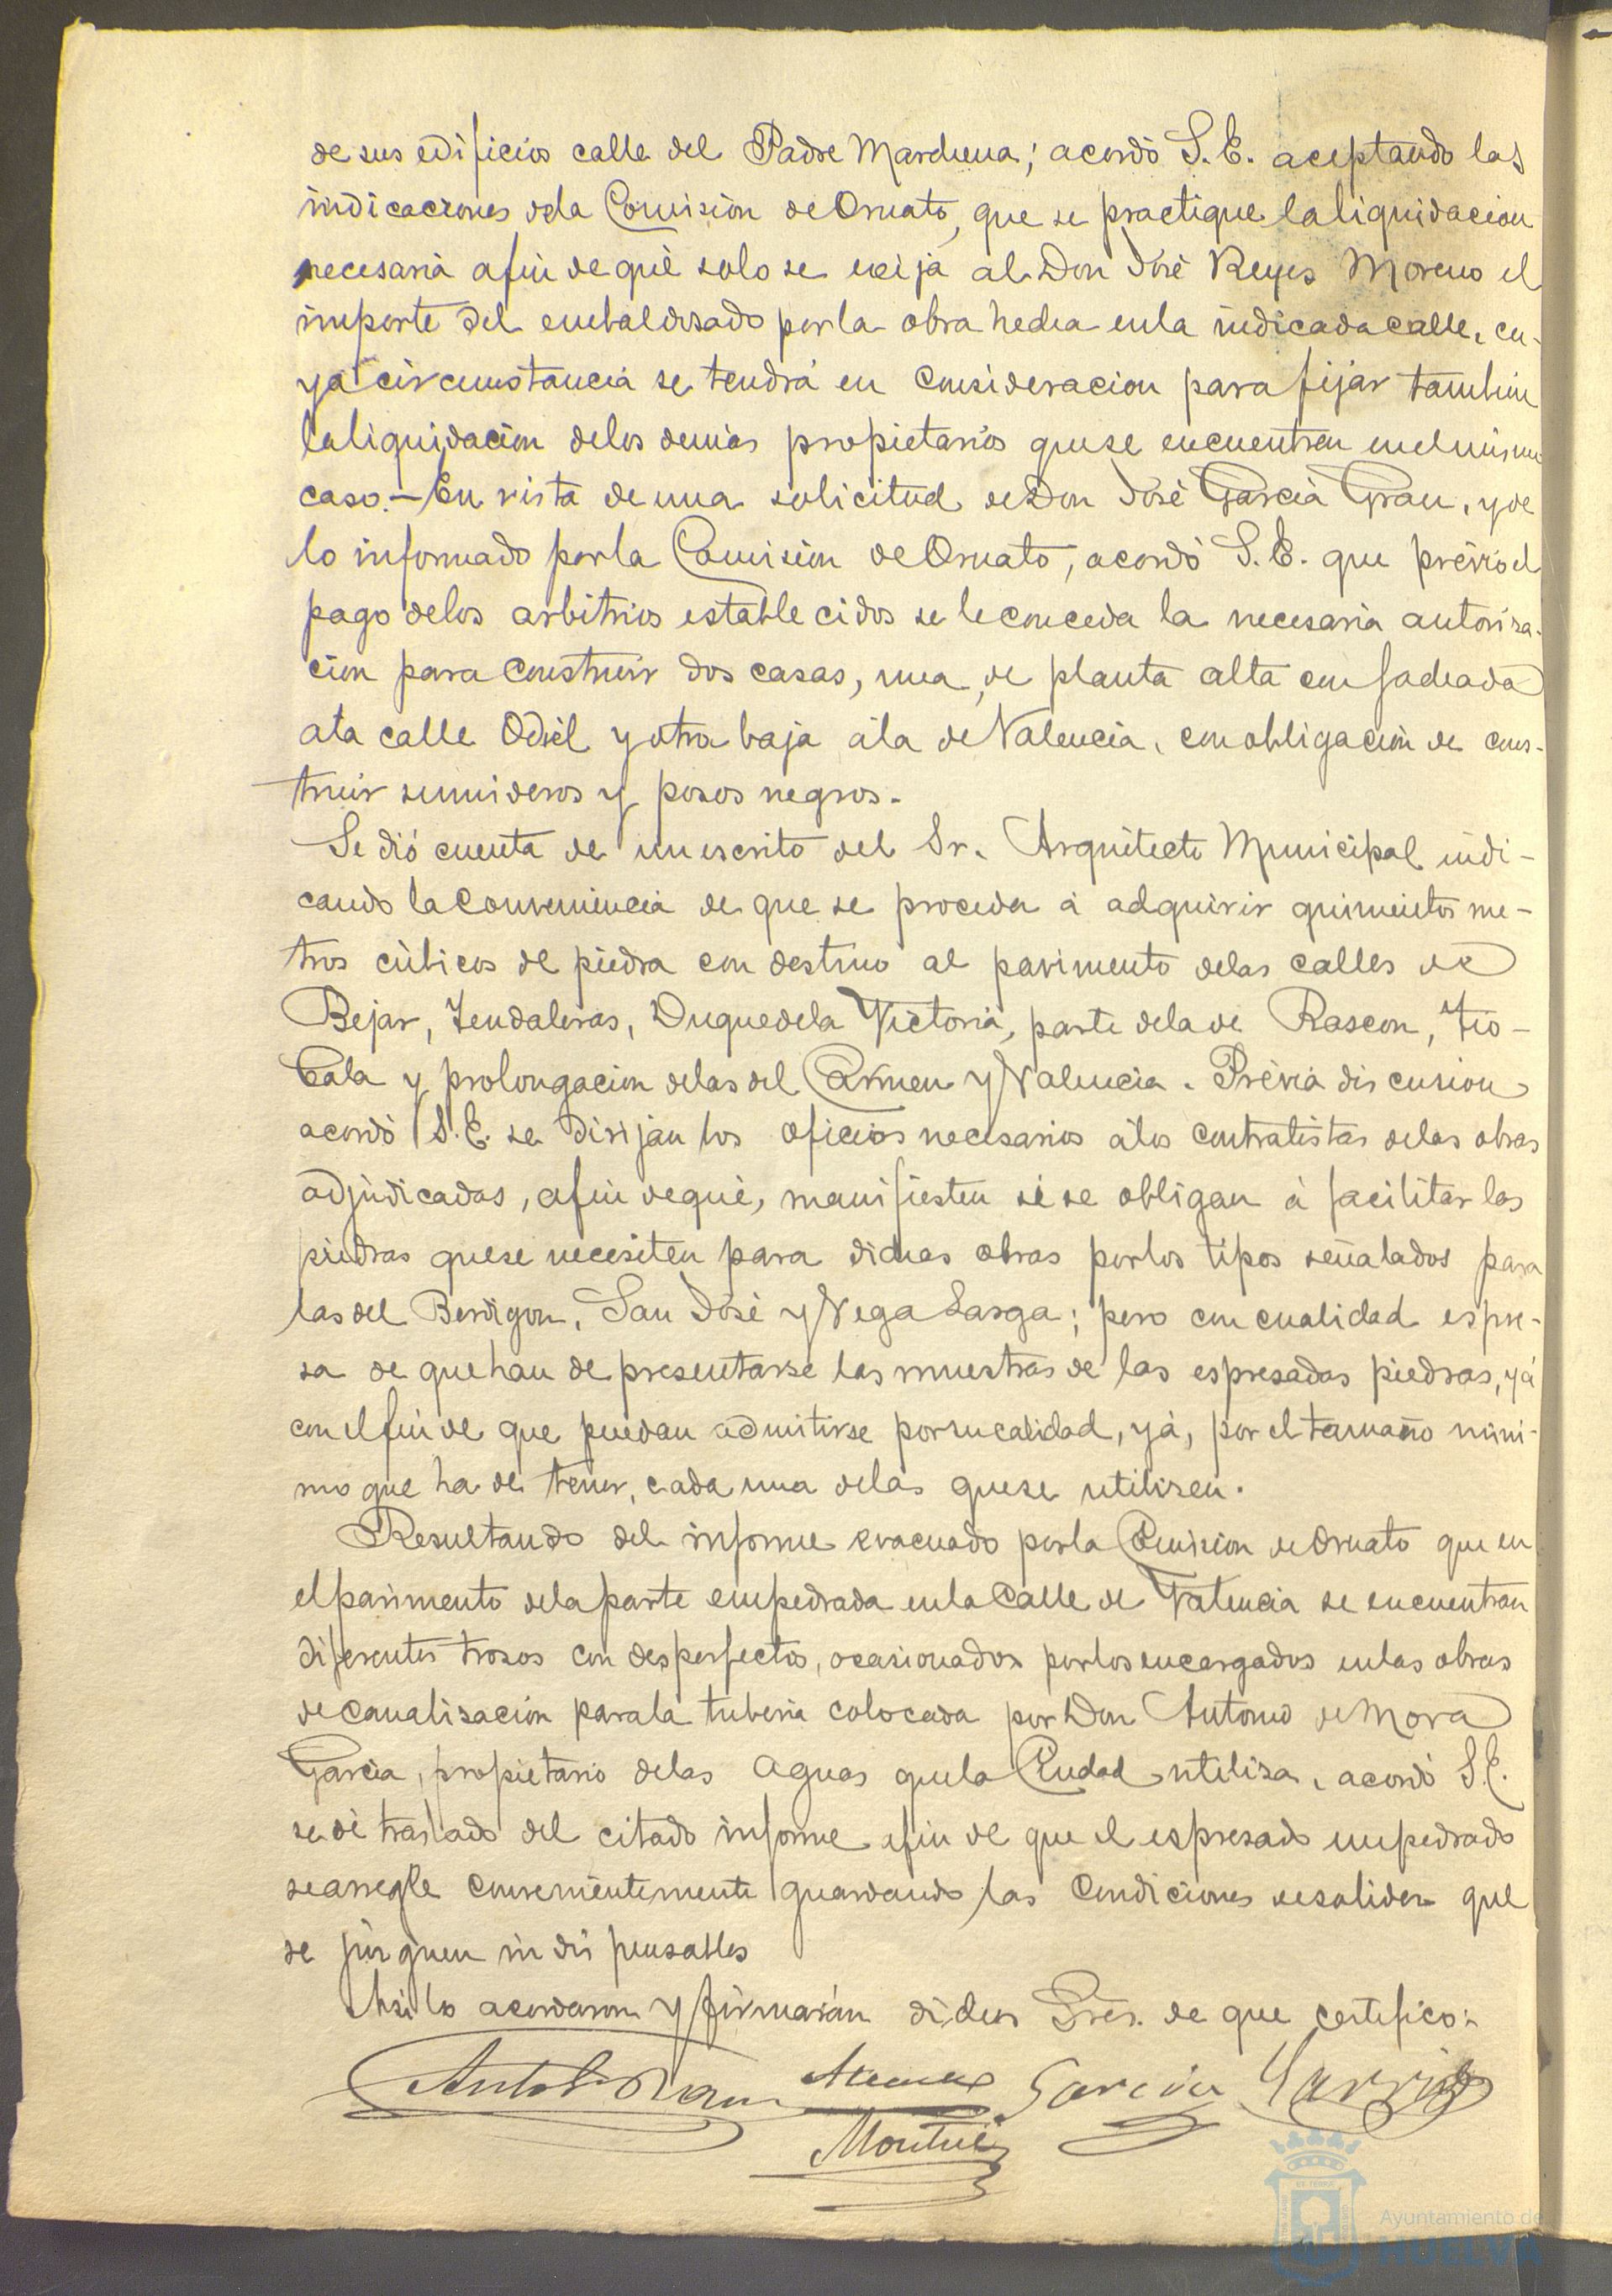 de sus edificios calle del Padre Marchena; acordó S. E. aceptando las
indicaciones de la Comision de Ornato, que se practique la liquidacion
necesaria afin de que solo se exija al Don José Reyes Moreno el
importe del embaldosado por la obra hecha en la indicada calle, cu-
ya circunstancia se tendrá en consideracion para fijar tambien
la liquidacion de los demás propietarios que se encuentren en el mismo
caso.- En vista de una solicitud de Don José García Grau, y de
lo informado por la Comision de Ornato, acordó S. E. que prévio el
pago de los arbitrios establecidos se le conceda la necesaria autoriza-
cion para construir dos casas, una de planta alta con fachada
a la calle Odiel y otra baja á la de Valencia, con obligacion de cons-
truir sumideros y posos negros.
Se dió cuenta de un escrito del Sr. Arquitecto Municipal indi-
cando la conveniencia de que se proceda á adquirir quinientos me-
tros cúbicos de piedra con destino al pavimento de las calles de
Bejar, Tendaleras, Duque de la Victoria, parte de la de Rascon, Tio-
Cala y prolongacion de las del Carmen y Valencia. Prévia discusion
acordó S. E. se dirijan los oficios necesarios á los contratistas de las obras
adjudicadas, afin de que, manifiesten si se obligan á facilitar las
piedras que se necesiten para dichas obras por los tipos señalados para
las del Berdigon, San José y Vega Larga; pero con cualidad espre-
sa de que han de presentarse las muestras de las espresadas piedras, yá
con el fin de que puedan admitirse por su calidad, yá, por el tamaño míni-
mo que ha de tener, cada una de las que se utilisen.
Resultando del informe evacuado por la Comision de Ornato que en
el pavimento de la parte empedrada en la calle de Valencia se encuentran
diferentes trosos con desperfectos, ocasionados por los encargados en las obras
de canalisacion para la tuberia colocada por Don Antonio de Mora
Garcia, propietario de las aguas que la Ciudad utilisa, acordó S. E.
se dé traslado del citado informe afin de que el espresado empedrado
se arregle convenientemente guardando las condiciones de solidez que
se juzguen indispensables
Asi lo acordaron y firmarán dichos Sres. de que certifico:
Garcia Garrido